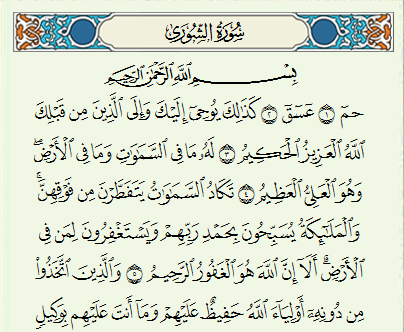 سُورَةُ الشُّورَىٰ
بِسْمِ اللَّهِ الرَّحْمَٰنِ الرَّحِيمِ
حمٓ ١ عٓسٓقٓ ٢ كَذَٰلِكَ يُوحِىٓ إِلَيْكَ وَإِلَى ٱلَّذِينَ مِن قَبْلِكَ
ٱللَّهُ ٱلْعَزِيزُ ٱلْحَكِيمُ ٣ لَهُۥ مَا فِى ٱلسَّمَٰوَٰتِ وَمَا فِى ٱلْأَرْضِ ۖ
وَهُوَ ٱلْعَلِىُّ ٱلْعَظِيمُ ٤ تَكَادُ ٱلسَّمَٰوَٰتُ يَتَفَطَّرْنَ مِن فَوْقِهِنَّ ۚ
وَٱلْمَلَٰٓئِكَةُ يُسَبِّحُونَ بِحَمْدِ رَبِّهِمْ وَيَسْتَغْفِرُونَ لِمَن فِى
ٱلْأَرْضِ ۗ أَلَآ إِنَّ ٱللَّهَ هُوَ ٱلْغَفُورُ ٱلرَّحِيمُ ٥ وَٱلَّذِينَ ٱتَّخَذُوا۟
مِن دُونِهِۦٓ أَوْلِيَآءَ ٱللَّهُ حَفِيظٌ عَلَيْهِمْ وَمَآ أَنتَ عَلَيْهِم بِوَكِيلٍ